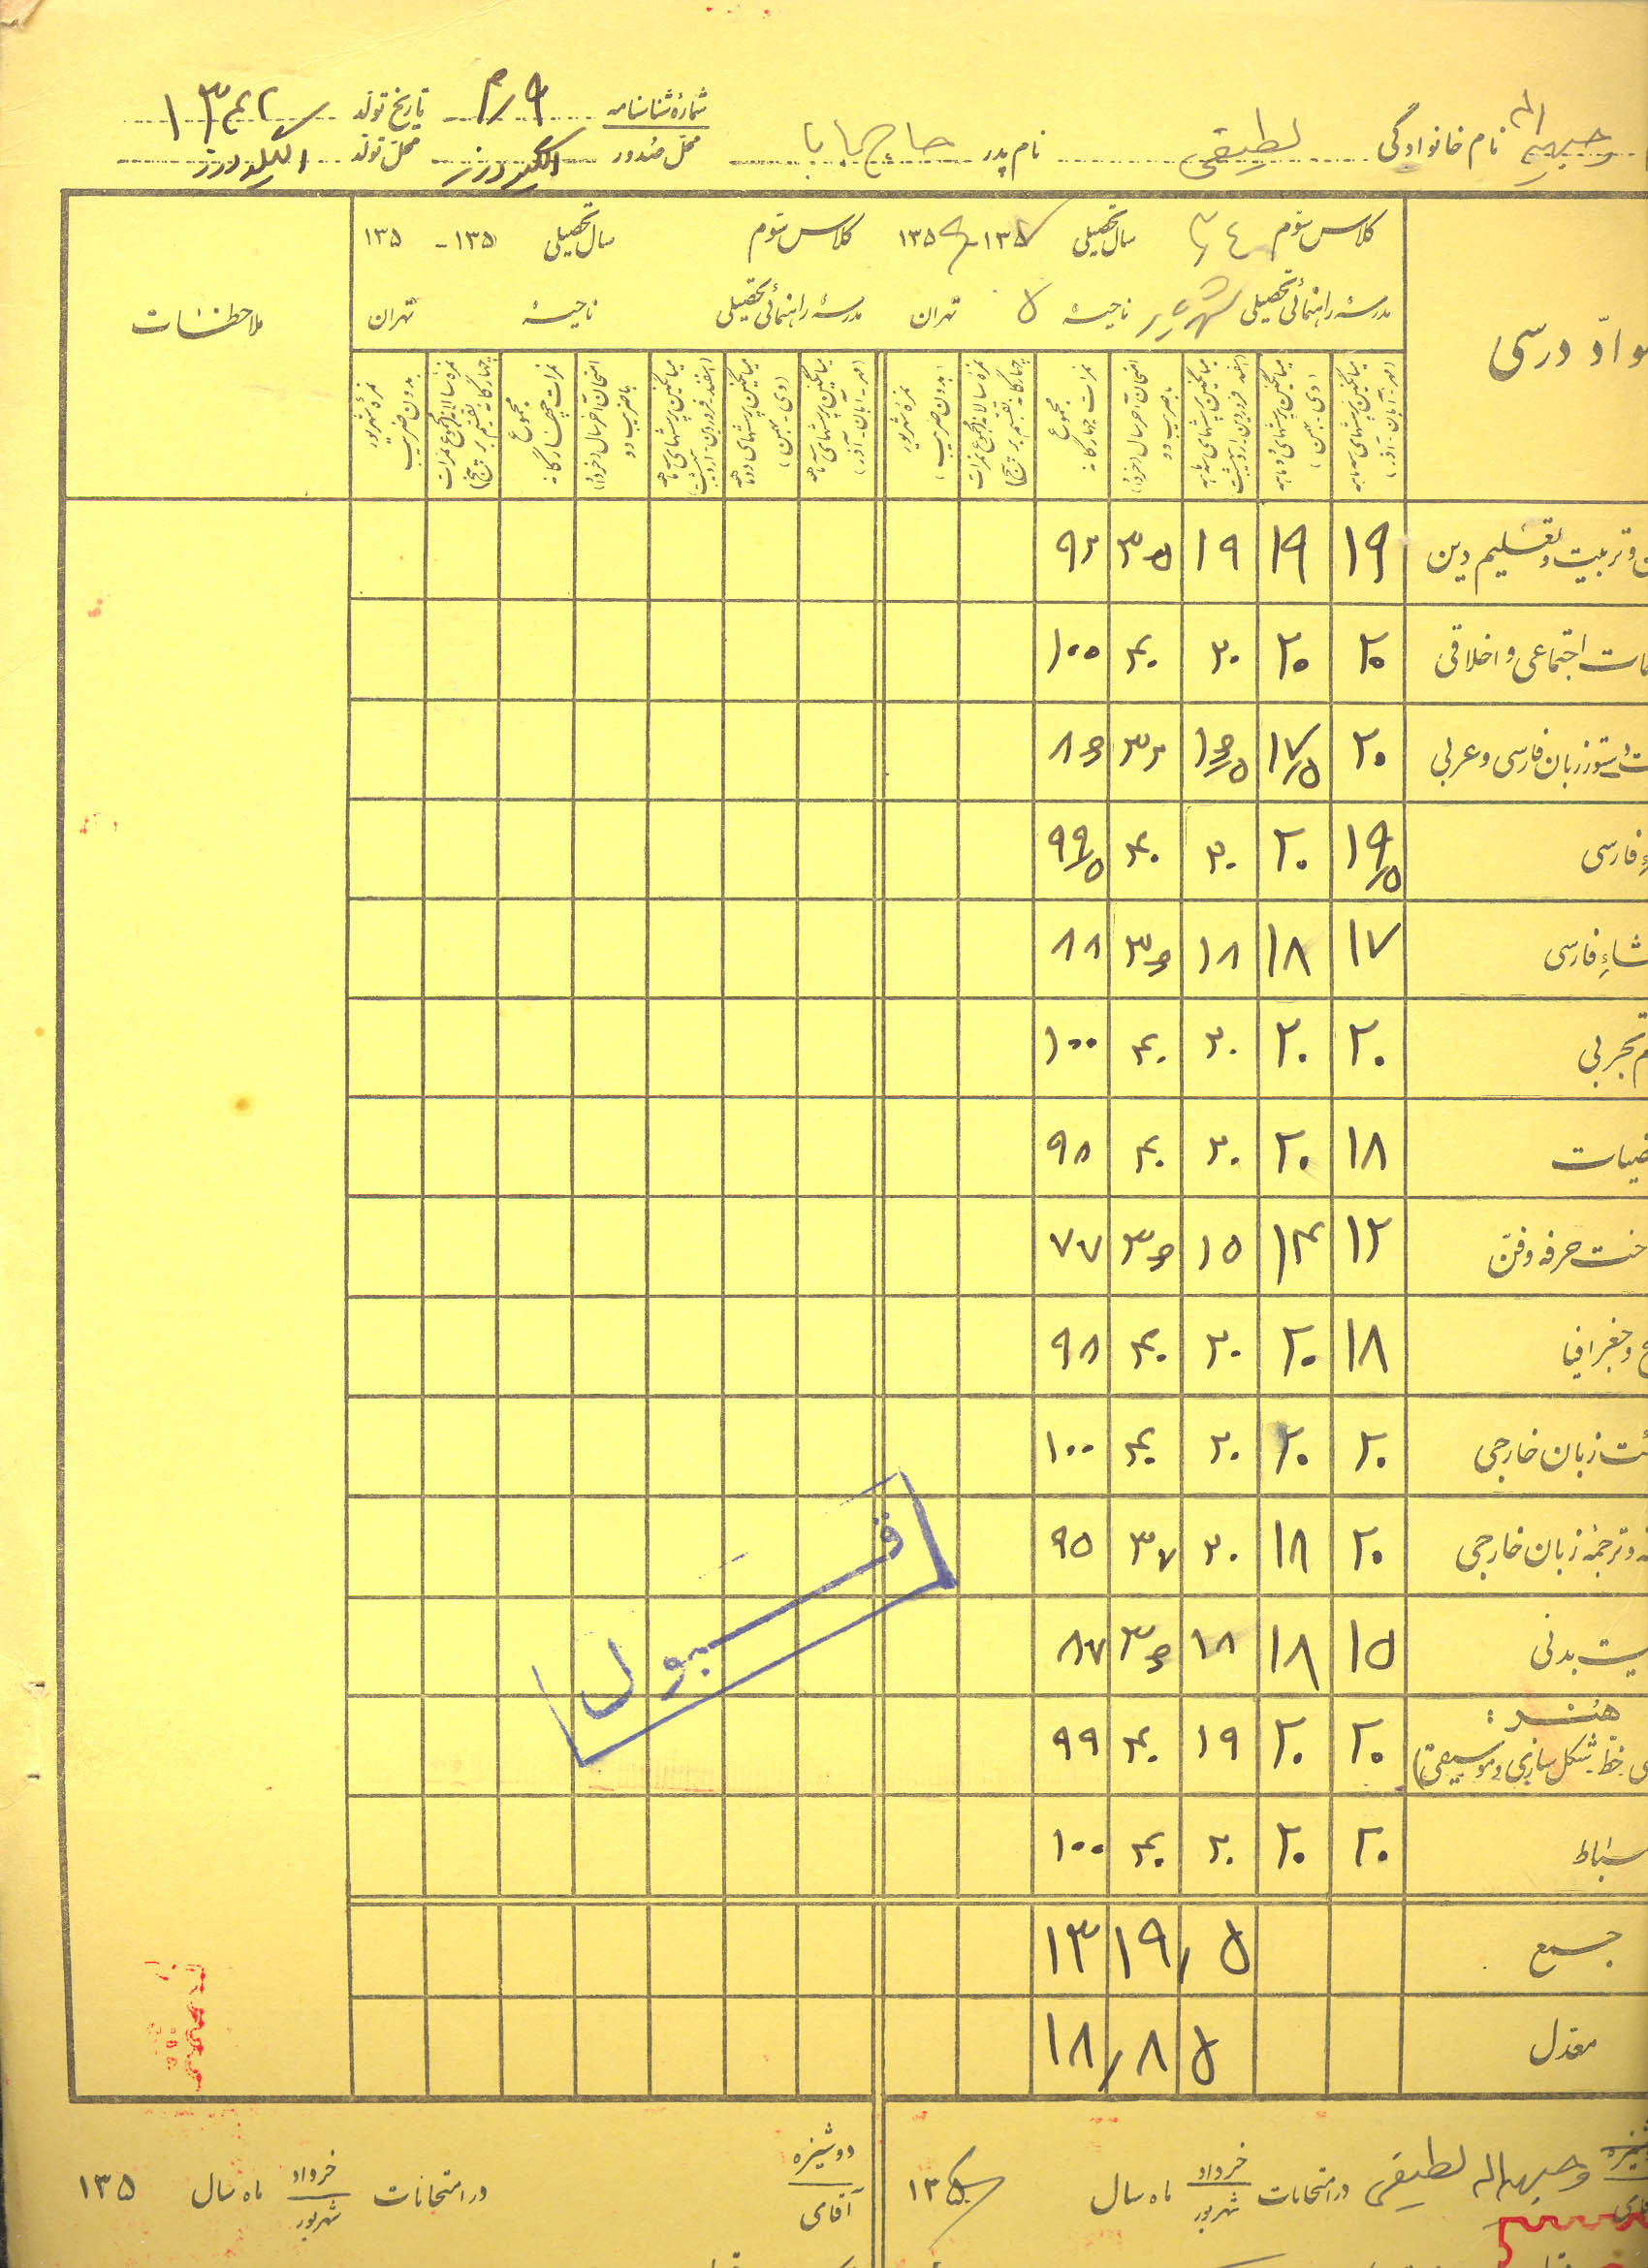 وجیهه اله نام خانوادگی لطیفی نام پدر حاج بابا شمارهٔ شناسنامه ۲/۹ تاریخ تولد
محل صدور الیگودرز محل تولد الیگودرز
کلاس سوم سال تحصیلی ۱۳۵ کلاس سوم سال تحصیلی ۱۳۵ - ۱۳۵
مدرسهٔ راهنمائی تحصیلی ناحیهٔ ۵ تهران مدرسهٔ راهنمائی تحصیلی ناحیهٔ تهران
مواد درسی ملاحظات
میانگین پرسشهای سه ماهه (مهر - آبان - آذر)
میانگین پرسشهای دو ماهه (دی - بهمن)
میانگین پرسشهای سه ماهه (اسفند - فروردین - اردیبهشت)
امتحان آخر سال (خرداد) با ضریب دو
مجموع نمرات چهارگانه
نمره سالانه (مجموع نمرات چهارگانه تقسیم بر پنج)
نمرهٔ شهریور (بدون ضریب)
میانگین پرسشهای سه ماهه (مهر - آبان - آذر)
میانگین پرسشهای دو ماهه (دی - بهمن)
میانگین پرسشهای سه ماهه (اسفند - فروردین - اردیبهشت)
امتحان آخر سال (خرداد) با ضریب دو
مجموع نمرات چهارگانه
نمره سالانه (مجموع نمرات چهارگانه تقسیم بر پنج)
نمرهٔ شهریور بدون ضریب
و تربیت و تعلیم دین ۱۹ ۱۹ ۱۹ ۳۵ ۹۲
اجتماعی و اخلاقی ۲۰ ۲۰ ۲۰ ۴۰ ۱۰۰
دستور زبان فارسی و عربی ۲۰ ۱۷/۵ ۱۶/۵ ۳۲ ۸۶
فارسی ۱۹/۵ ۲۰ ۲۰ ۴۰ ۹۹/۵
شاء فارسی ۱۷ ۱۸ ۱۸ ۳۶ ۸۸
م تجربی ۲۰ ۲۰ ۲۰ ۴۰ ۱۰۰
ضیات ۱۸ ۲۰ ۲۰ ۴۰ ۹۸
اخت حرفه و فن ۱۲ ۱۴ ۱۵ ۳۶ ۷۷
خ و جغرافیا ۱۸ ۲۰ ۲۰ ۴۰ ۹۸
ئت زبان خارجی ۲۰ ۲۰ ۲۰ ۴۰ ۱۰۰
و ترجمهٔ زبان خارجی ۲۰ ۱۸ ۲۰ ۳۷ ۹۵
یت بدنی ۱۵ ۱۸ ۱۸ ۳۶ ۸۷
هنر :
خط، شکل سازی و موسیقی) ۲۰ ۲۰ ۱۹ ۴۰ ۹۹
ضباط ۲۰ ۲۰ ۲۰ ۴۰ ۱۰۰
قبول
جمع ۱۳۱۹/۵
معدل ۱۸/۸۵
وجیهه اله لطیفی در امتحانات خرداد شهریور ماه سال ۱۳۵ دوشیزه آقای در امتحانات خرداد شهریور ماه سال ۱۳۵